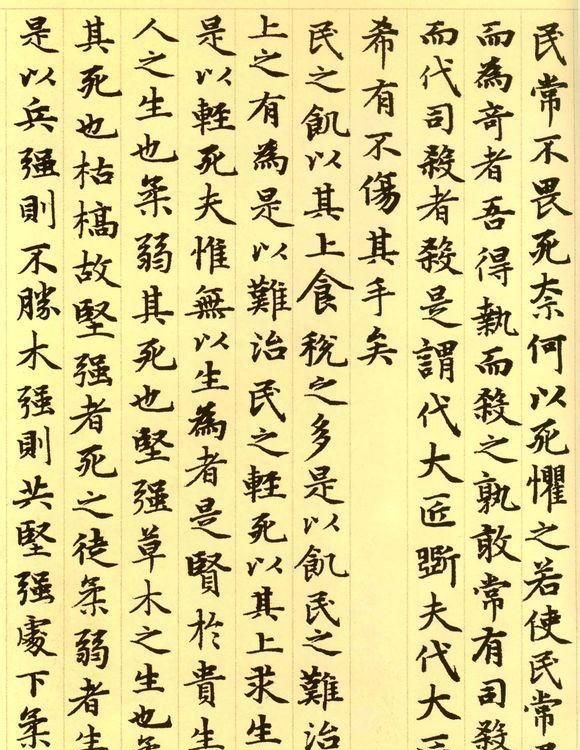 民常不畏死柰何以死懼之若使民常
而為奇者吾得執而殺之孰敢常有司殺
而代司殺者殺是謂代大匠斲夫代大匠
希有不傷其手矣
民之飢以其上食稅之多是以飢民之難治
上之有為是以難治民之輕死以其上求生
是以輕死夫惟無以生為者是賢於貴生
人之生也柔弱其死也堅强草木之生也柔
其死也枯槁故堅强者死之徒柔弱者生
是以兵强則不勝木强則共堅强處下柔